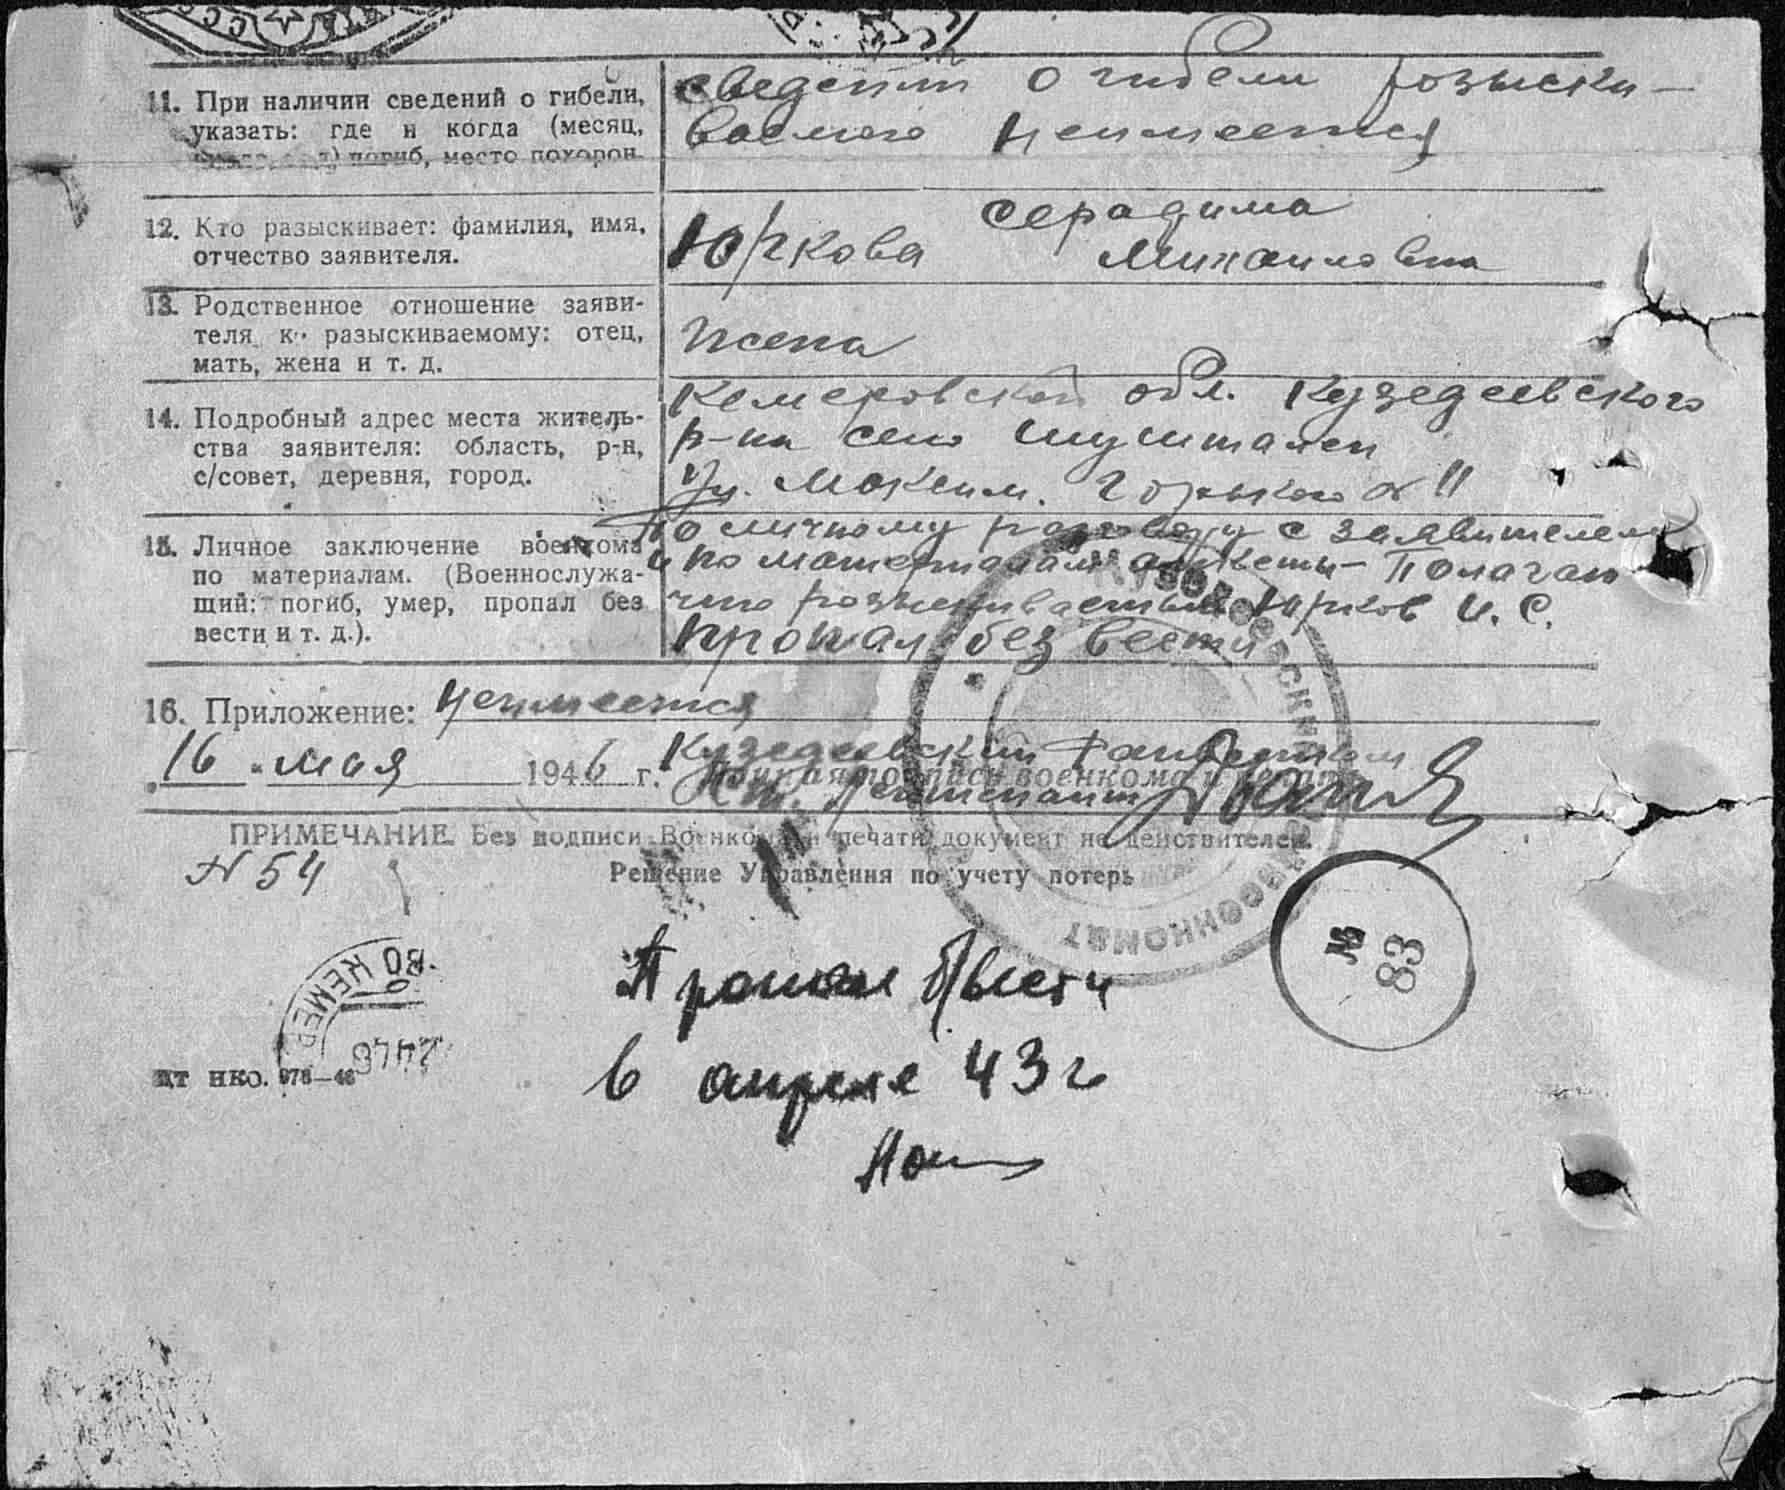 11. При наличии сведений о гибели,
указать: где и когда (месяц,
погиб, место похорон.
сведении о гибели розыски-
ваемого неимеется
12. Кто разыскивает: фамилия, имя,
отчество заявителя.
Юркова Серафима
Михаиловна
13. Родственное отношение заяви-
теля к разыскиваемому: отец,
мать, жена и т. д.
жена
14. Подробный адрес места житель-
ства заявителя: область, р-н,
с/совет, деревня, город.
Кемеровской обл. Кузедеевского
р-на село Шушталеп
ул. Максим. Горького № 11
15. Личное заключение военкома
по материалам. (Военнослужа-
щий: погиб, умер, пропал без
вести и т. д.).
По личному разговору с заявителем
и по материалам анкеты - Полагаю
что розыскиваемый Юрков И. С.
пропал без вести
16. Приложение: неимеется
16 " мая 1946 г.
Кузедеевский Райвоенком
Личная подпись военкома и печать
Лейтенант
ПРИМЕЧАНИЕ. Без подписи Военкома и печати документ не действителен.
N 54
Решение Управления по учету потерь
ВОЕНКОМАТ
№
83
Пропал б/вести
в апреле 43 г
КЕМЕР
2446
шт нко. 978—46